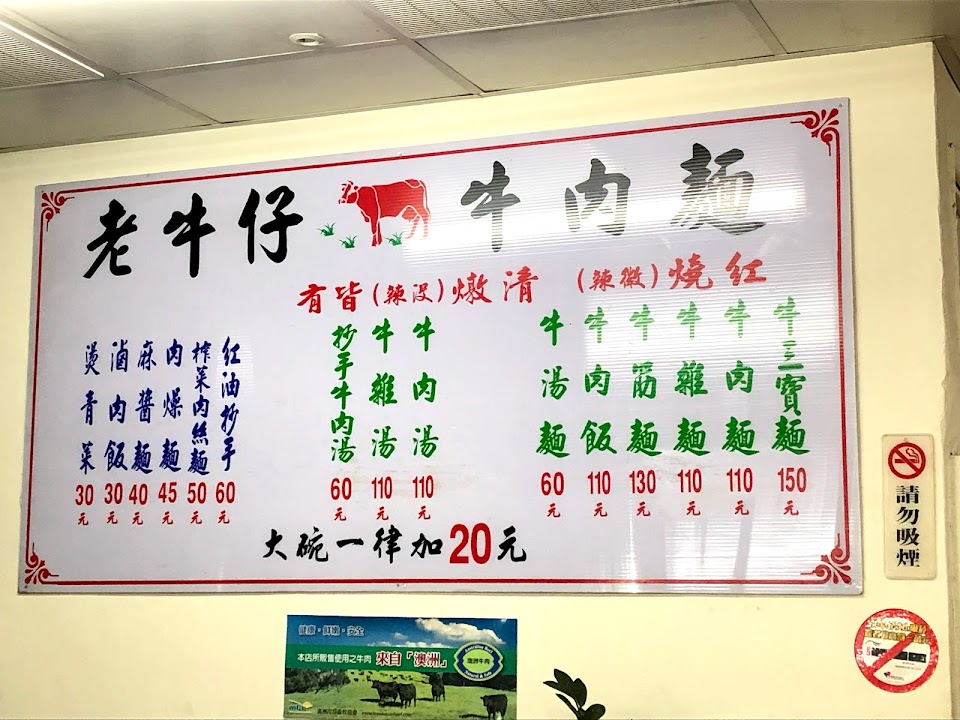 老牛仔 牛肉麵
紅燒(微辣) 清燉(沒辣)皆有
牛三寶麵 150元
牛肉麵 110元
牛雜麵 110元
牛筋麵 130元
牛肉飯 110元
牛湯麵 60元
牛肉湯 110元
牛雜湯 110元
抄手牛肉湯 60元
紅油抄手 60元
榨菜肉絲麵 50元
肉燥麵 45元
麻醬麵 40元
滷肉飯 30元
燙青菜 30元
大碗一律加20元
請勿吸煙
健康・鮮嫩・安全
本店所販售使用之牛肉 來自「澳洲」
Australian Beef
澳洲牛肉
mla